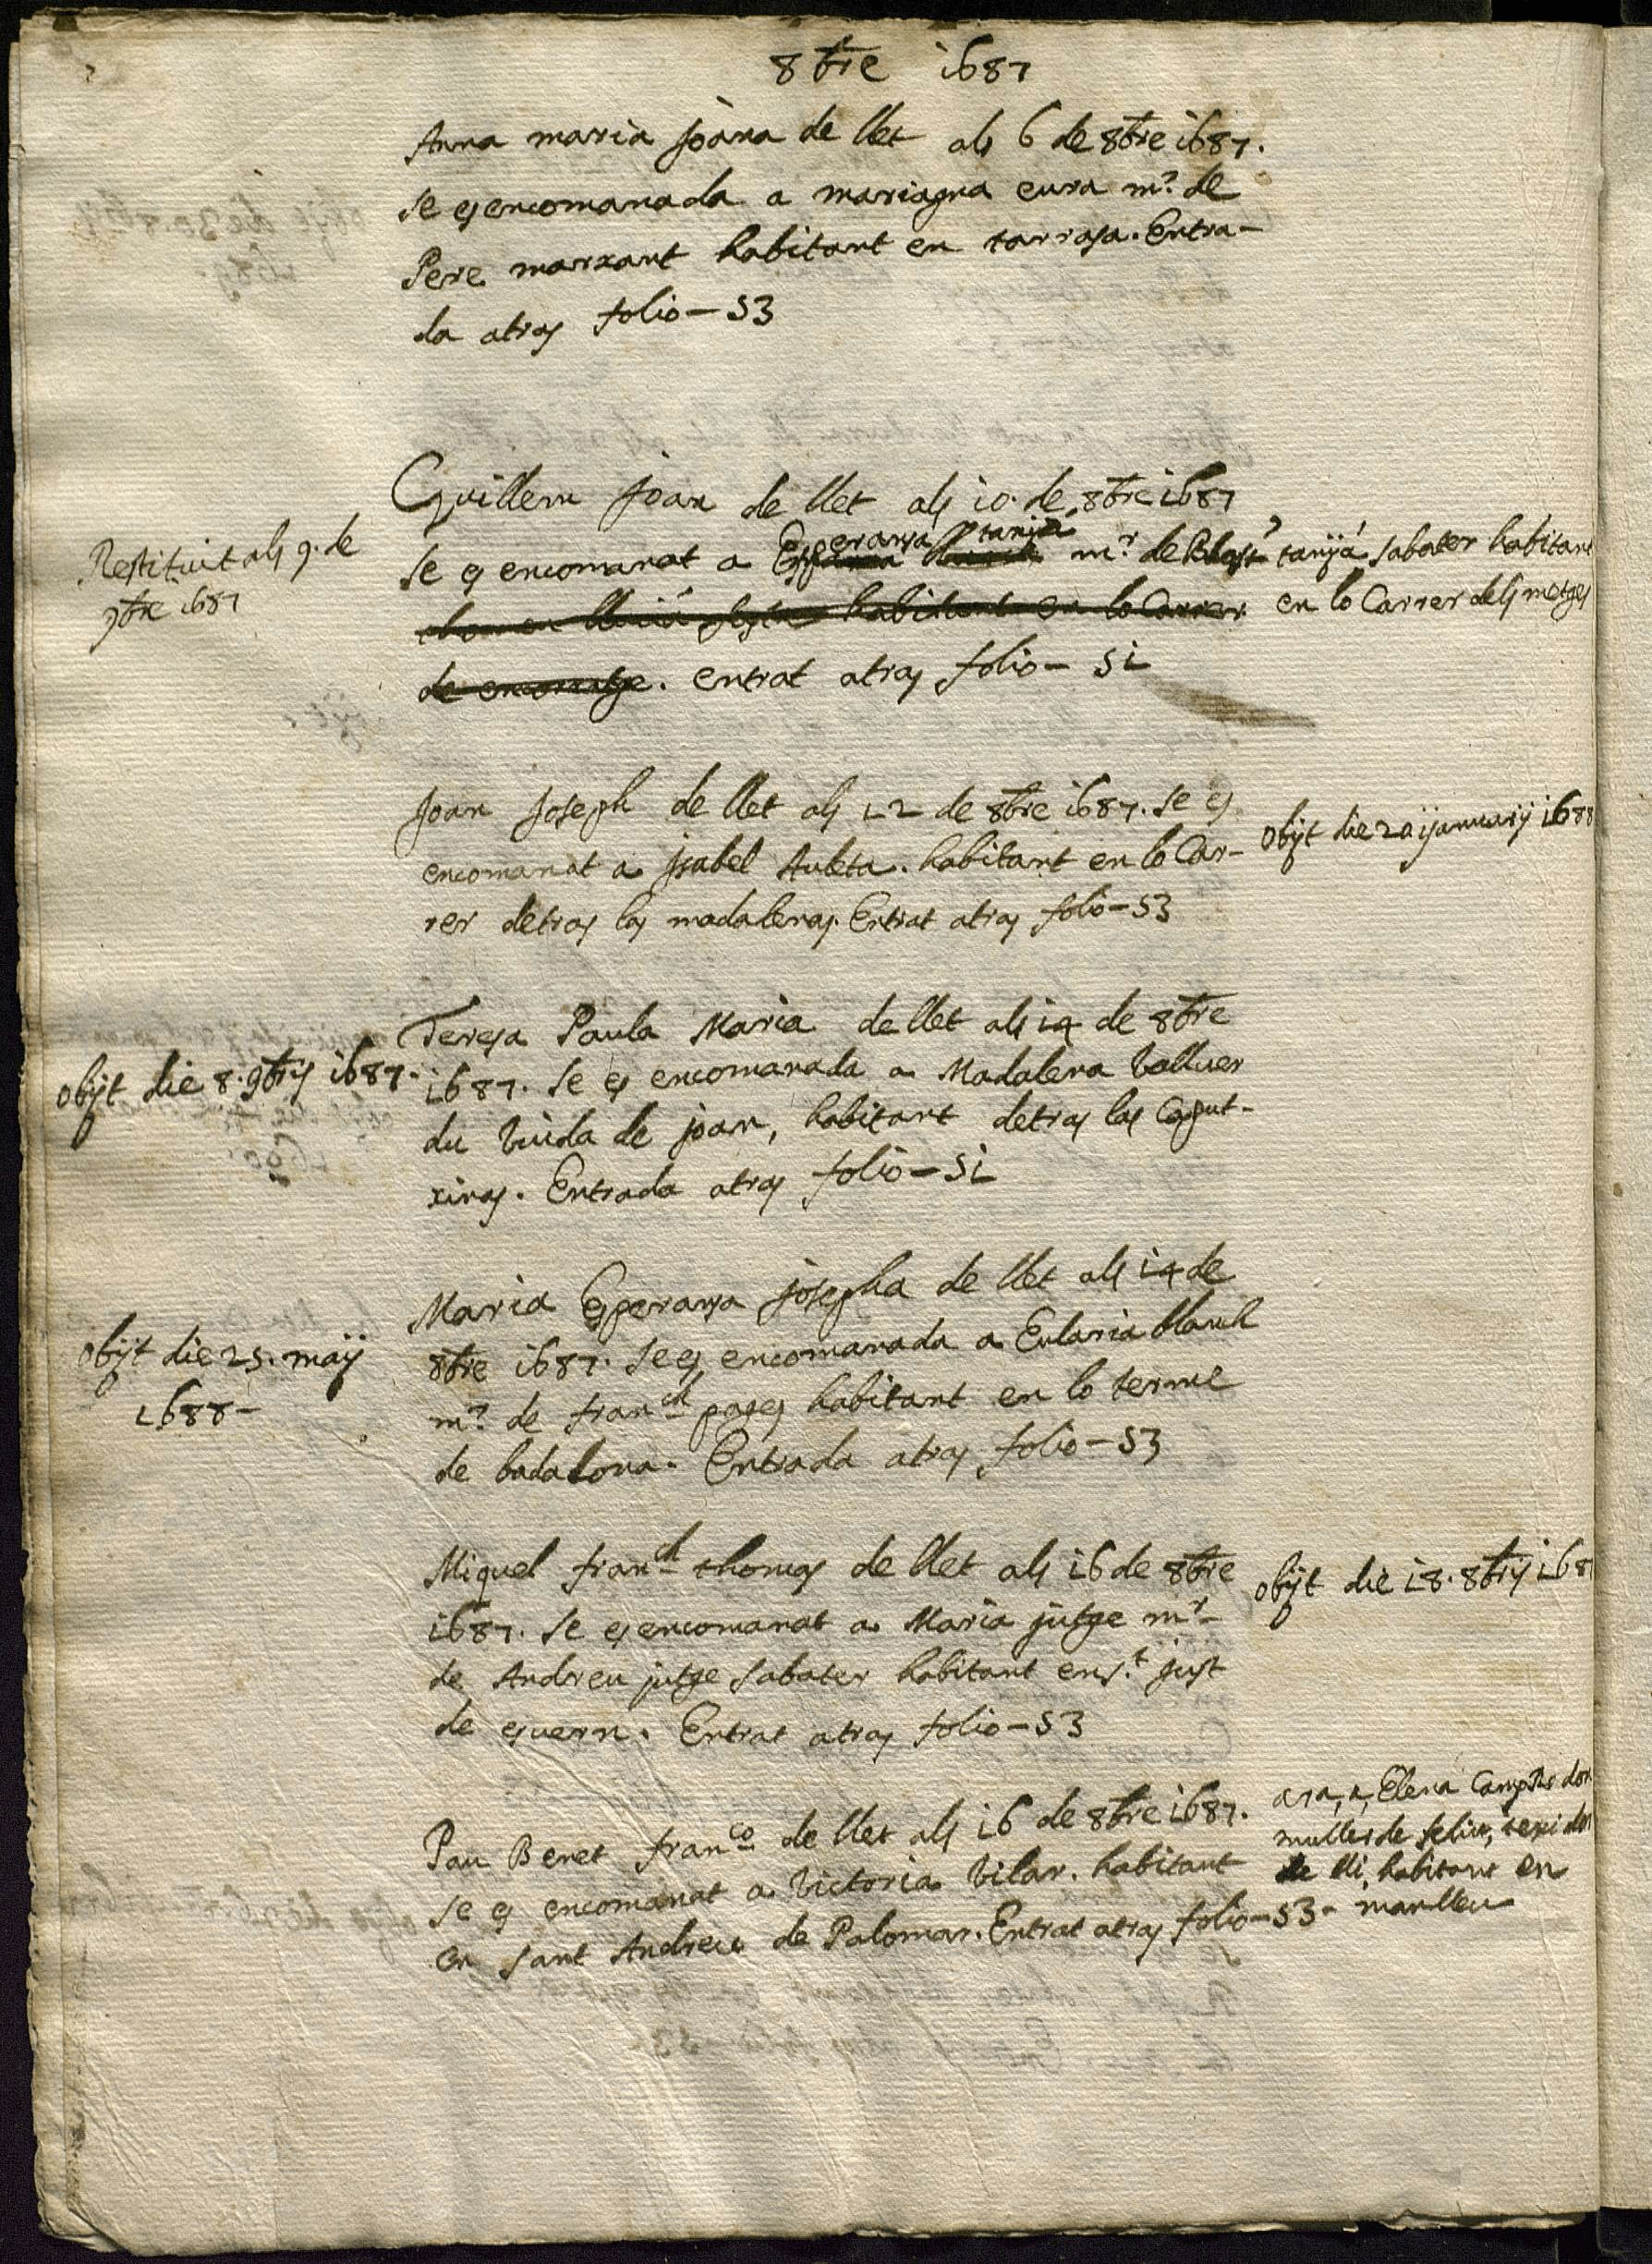 8bre 1687
Anna maria Joana de llet als 6 de 8bre 1687.
se es encomanada a mariagna eura mr. de
Pere marxant habitant en tarrasa. Entra-
da atras folio - 53
Guillem Joan de llet als 10 de 8bre 1687
Restituit als 9. de
9bre 1687
Esperansa tanÿá
se es encomanat a mr. de tanÿá sabater habitant
habitant en lo Carrer en lo Carrer dels metges
de . entrat atras folio - 51
Joan Joseph de llet als 12 de 8bre 1687. se es
obijt die 20 january 1688
encomanat a Isabel Auleta. habitant en lo Car-
rer detras las madalenas. Entrat atras folio - 53
Teresa Paula Maria de llet als 14 de 8bre
obijt die 8. 9bris 1687.
1687. se es encomanada a Madalena Valluer
du viuda de joan, habitant detras las Caput-
xinas. Entrada atras folio - 51
Maria Esperansa josepha de llet als 14 de
obijt die 25. maij
1688 -
8bre 1687. se es encomanada a Eularia blanch
mr. de franch pages habitant en lo terme
de badalona. Entrada atras folio - 53
Miquel franch thomas de llet als 16 de 8bre
obijt die 18. 8bris 168
1687. se es encomanat a Maria jutge mr
de Andreu jutge sabater habitant en st. just
de esvern. Entrat atras folio - 53
Pau Benet franco de llet als 16 de 8bre 1687.
se es encomanat a Victoria Vilar. habitant
en sant Andreu de Palomar. Entrat atras folio - 53 -
ara, a, Elena
muller de feliu, texidor
de lli, habitant en
manlleu